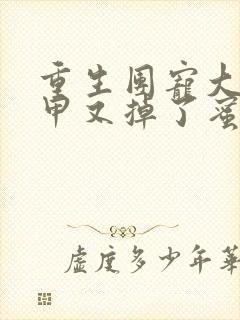 重生团宠大
甲又掉了蜜
虚度多少年华